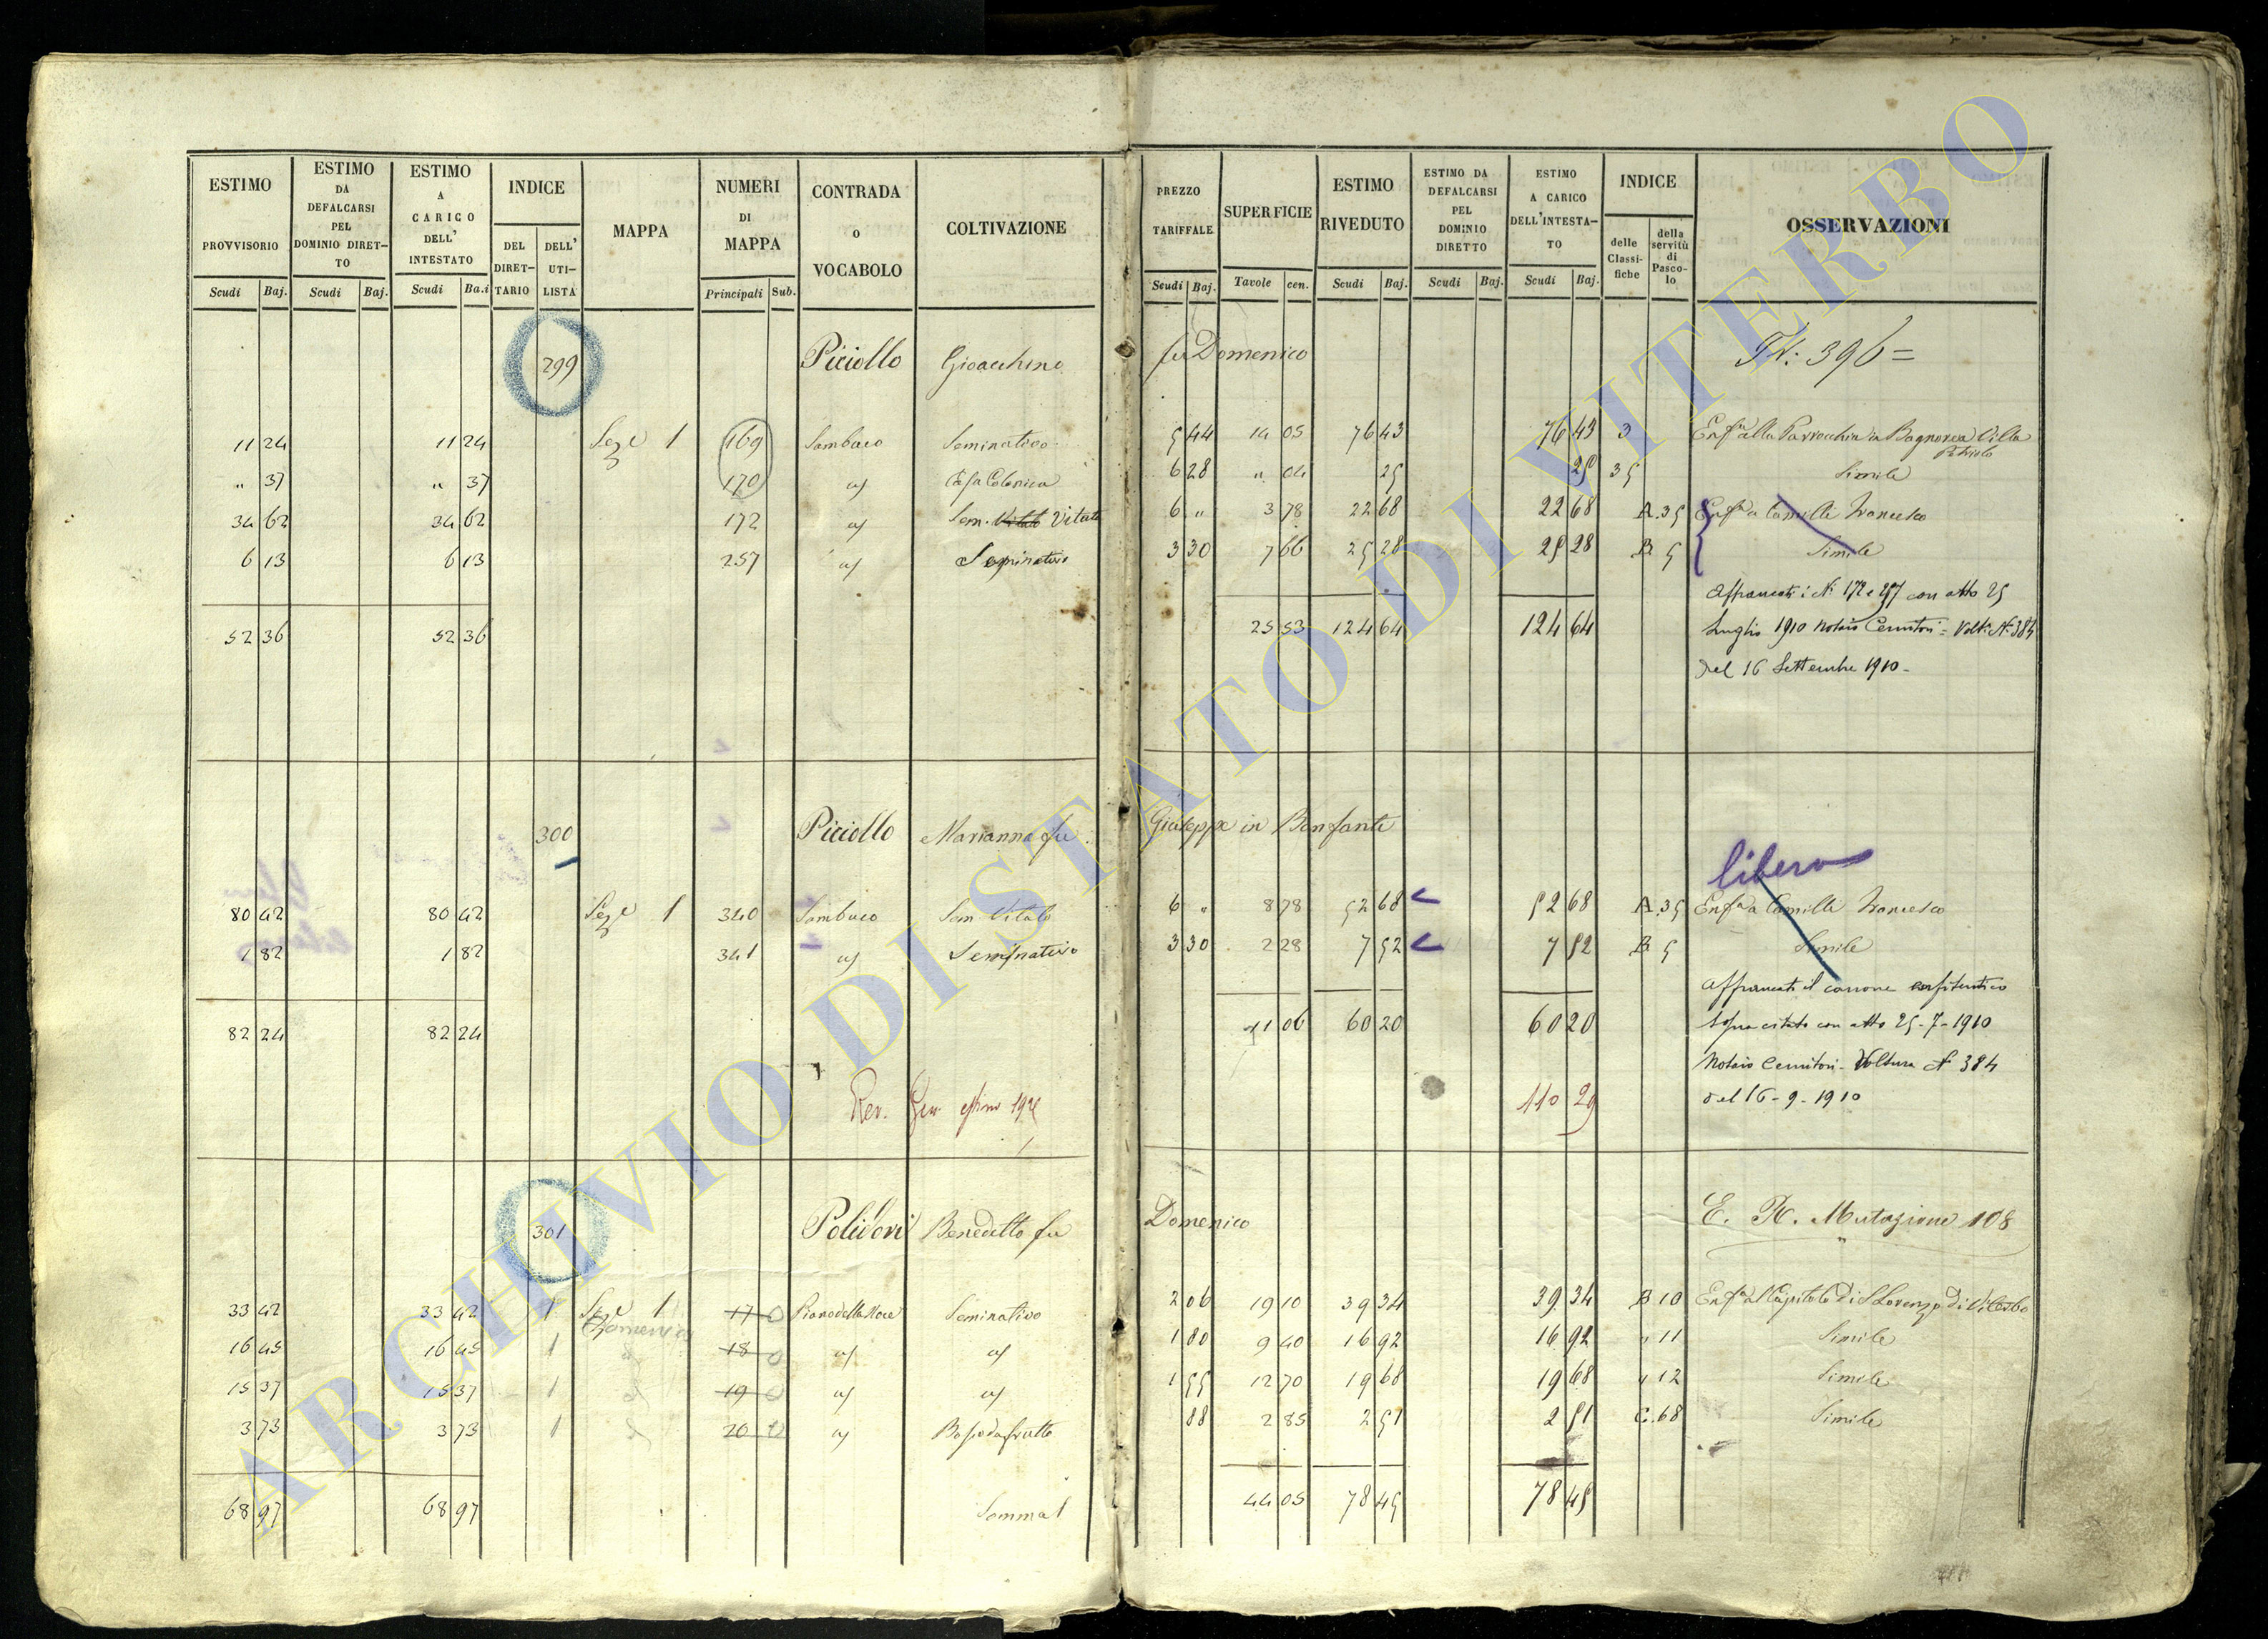 ESTIMO PROVVISORIO | ESTIMO DA DEFALCARSI PEL DOMINIO DIRETTO | ESTIMO A CARICO DELL' INTESTATO | INDICE | MAPPA | NUMERI DI MAPPA | CONTRADA o VOCABOLO | COLTIVAZIONE | PREZZO TARIFFALE | SUPERFICIE | ESTIMO RIVEDUTO | ESTIMO DA DEFALCARSI PEL DOMINIO DIRETTO | ESTIMO A CARICO DELL'INTESTATO | INDICE | OSSERVAZIONI
DEL DIRETTARIO | DELL' UTILISTA | delle Classifiche | della servitù di Pascolo
Scudi | Baj. | Scudi | Baj. | Scudi | Ba.i | Principali | Sub. | Scudi | Baj. | Tavole | cen. | Scudi | Baj. | Scudi | Baj. | Scudi | Baj.
299 Piciollo Gioacchino fu Domenico
396=
11 24 | 11 24 | Sez.e 1 | 169 | Sambuco | Seminativo | 5 44 | 14 05 | 76 43 | 76 43 | 3 | Enf.a alla Parrochia in Bagnorea Villa
" 37 | " 37 | 170 | Casa Colonica | 6 28 | " 04 | 25 | 25 | 35 | Simile
34 62 | 34 62 | 172 | Sem. Vitato Vitato | 6 " | 3 78 | 22 68 | 22 68 | A.35 | Enf.a a Camilli Francesco
6 13 | 6 13 | 257 | Seminativo | 3 30 | 7 66 | 25 28 | 25 28 | B 5 | Simile
Affrancati i N. 172 e 257 con atto 25
52 36 | 52 36 | 25 53 | 124 64 | 124 64 | Luglio 1910 Notaio = Volt.a N. 384
del 16 Settembre 1910-
300 Piciollo Marianna fu Giuseppe in Bonfante
libero
80 42 | 80 42 | Sez.e 1 | 340 | Sambuco | Sem Vitato | 6 " | 8 78 | 52 68 | 52 68 | A.35 | Enf.a a Camilli Francesco
1 82 | 1 82 | 341 | Seminativo | 3 30 | 2 28 | 7 52 | 7 52 | B 5 | Simile
Affrancato il canone enfiteutico
82 24 | 82 24 | 11 06 | 60 20 | 60 20 | sopra citato con atto 25-7-1910
Notaio - Voltura N 384
Rev. Gen. estimo | 110 29 | del 16-9-1910
301 Polidori Benedetto fu Domenico
Mutazione 108
33 42 | 33 42 | 1 | Sez.e 1 | 17 | Piano della Noce | Seminativo | 2 06 | 19 10 | 39 34 | 39 34 | B 10 | Enf.a al Capitolo di S Lorenzo di Viterbo
Domenico
16 45 | 16 45 | 1 | 18 | 1 80 | 9 40 | 16 92 | 16 92 | " 11 | Simile
15 37 | 15 37 | 1 | 19 | 1 55 | 12 70 | 19 68 | 19 68 | " 12 | Simile
3 73 | 3 73 | 1 | 20 | 88 | 2 85 | 2 51 | 2 51 | C.68 | Simile
68 97 | 68 97 | Somma | 44 05 | 78 45 | 78 45
ARCHIVIO DI STATO DI VITERBO